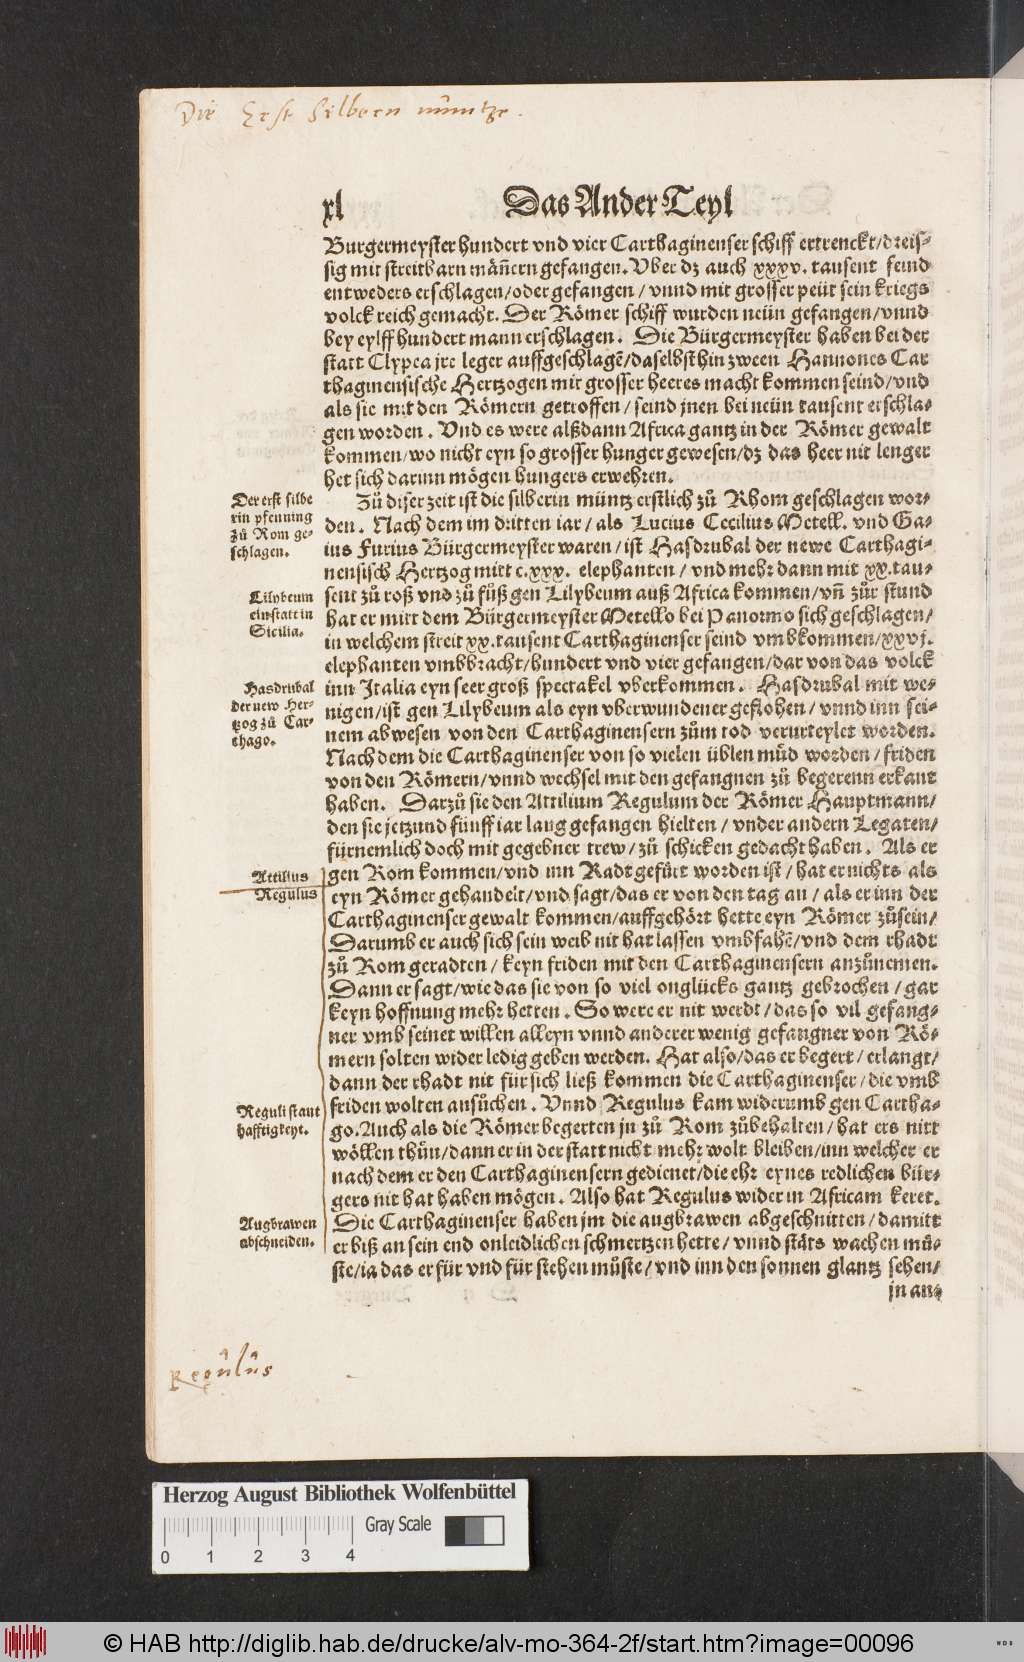 Die Erst Silbern müntze.
xl Das Ander Teyl
Burgermeyster hundert vnd vier Carthaginenser schiff ertrenckt/dreis-
sig mit streitbarn mäñern gefangen. Vber dz auch xxxv. tausent feind
entweders erschlagen/oder gefangen/vnnd mit grosser peüt sein kriegs
volck reich gemacht. Der Römer schiff wurden neün gefangen/vnnd
bey eylff hundert mann erschlagen. Die Bürgermeyster haben bei der
statt Clypea jre leger auffgeschlagē/daselbst hin zween Hannones Car
thaginensische Hertzogen mit grosser heeres macht kommen seind/vnd
als sie mit den Römern getroffen/seind jnen bei neün tausent erschla-
gen worden. Vnd es were alßdann Africa gantz in der Römer gewalt
kommen/wo nicht eyn so grosser hunger gewesen/dz das heer nit lenger
het sich darinn mögen hungers erwehren.
Der erst silbe
rin pfenning
zů Rom ge-
schlagen.
Zů diser zeit ist die silberin müntz erstlich zů Rhom geschlagen wor-
den. Nach dem im dritten iar/als Lucius Cecilius Metell. vnd Ga-
ius Furius Bürgermeyster waren/ist Hasdrubal der newe Carthagi-
nensisch Hertzog mitt c.xxx. elephanten/vnd mehr dann mit xx.tau-
Lilybeum
ein statt in
Sicilia.
sent zů roß vnd zů fůß gen Lilybeum auß Africa kommen/vñ zůr stund
hat er mitt dem Bürgermeyster Metello bei Panormo sich geschlagen/
in welchem streit xx.tausent Carthaginenser seind vmbkommen/xxvj.
elephanten vmbbracht/hundert vnd vier gefangen/dar von das volck
Hasdrubal
der new Her-
tzog zů Car-
thago.
inn Italia eyn seer groß spectakel vberkommen. Hasdrubal mit we-
nigen/ist gen Lilybeum als eyn vberwundener geflohen/vnnd inn sei-
nem abwesen von den Carthaginensern zům tod verurteylet worden.
Nach dem die Carthaginenser von so vielen üblen můd worden/friden
von den Römern/vnnd wechsel mit den gefangnen zů begerenn erkant
haben. Darzů sie den Attilium Regulum der Römer Hauptmann/
den sie jetzund fünff iar lang gefangen hielten/vnder andern Legaten/
fürnemlich doch mit gegebner trew/zů schicken gedacht haben. Als er
Attilius
Regulus
gen Rom kommen/vnd inn Radt gefürt worden ist/hat er nichts als
eyn Römer gehandelt/vnd sagt/das er von den tag an/als er inn der
Carthaginenser gewalt kommen/auffgehört hette eyn Römer zůsein/
Darumb er auch sich sein weib nit hat lassen vmbfahē/vnd dem rhadt
zů Rom geradten/keyn friden mit den Carthaginensern anzůnemen.
Dann er sagt/wie das sie von so viel onglücks gantz gebrochen/gar
keyn hoffnung mehr hetten. So were er nit werdt/das so vil gefang-
ner vmb seinet willen alleyn vnnd anderer wenig gefangner von Rö-
mern solten wider ledig geben werden. Hat also/das er begert/erlangt/
dann der rhadt nit für sich ließ kommen die Carthaginenser/die vmb
Reguli stant
hafftigkeyt.
friden wolten ansůchen. Vnnd Regulus kam widerumb gen Cartha-
go. Auch als die Römer begerten jn zů Rom zůbehalten/hat ers nitt
wöllen thůn/dann er in der statt nicht mehr wolt bleiben/inn welcher er
nach dem er den Carthaginensern gedienet/die ehr eynes redlichen bür-
gers nit hat haben mögen. Also hat Regulus wider in Africam keret.
Augbrawen
abschneiden.
Die Carthaginenser haben jm die augbrawen abgeschnitten/damitt
er biß an sein end onleidlichen schmertzen hette/vnnd stäts wachen mü-
ste/ia das er für vnd für stehen müste/vnd inn den sonnen glantz sehen/
jn an-
Regulus
Herzog August Bibliothek Wolfenbüttel
Gray Scale
0 1 2 3 4
© HAB http://diglib.hab.de/drucke/alv-mo-364-2f/start.htm?image=00096